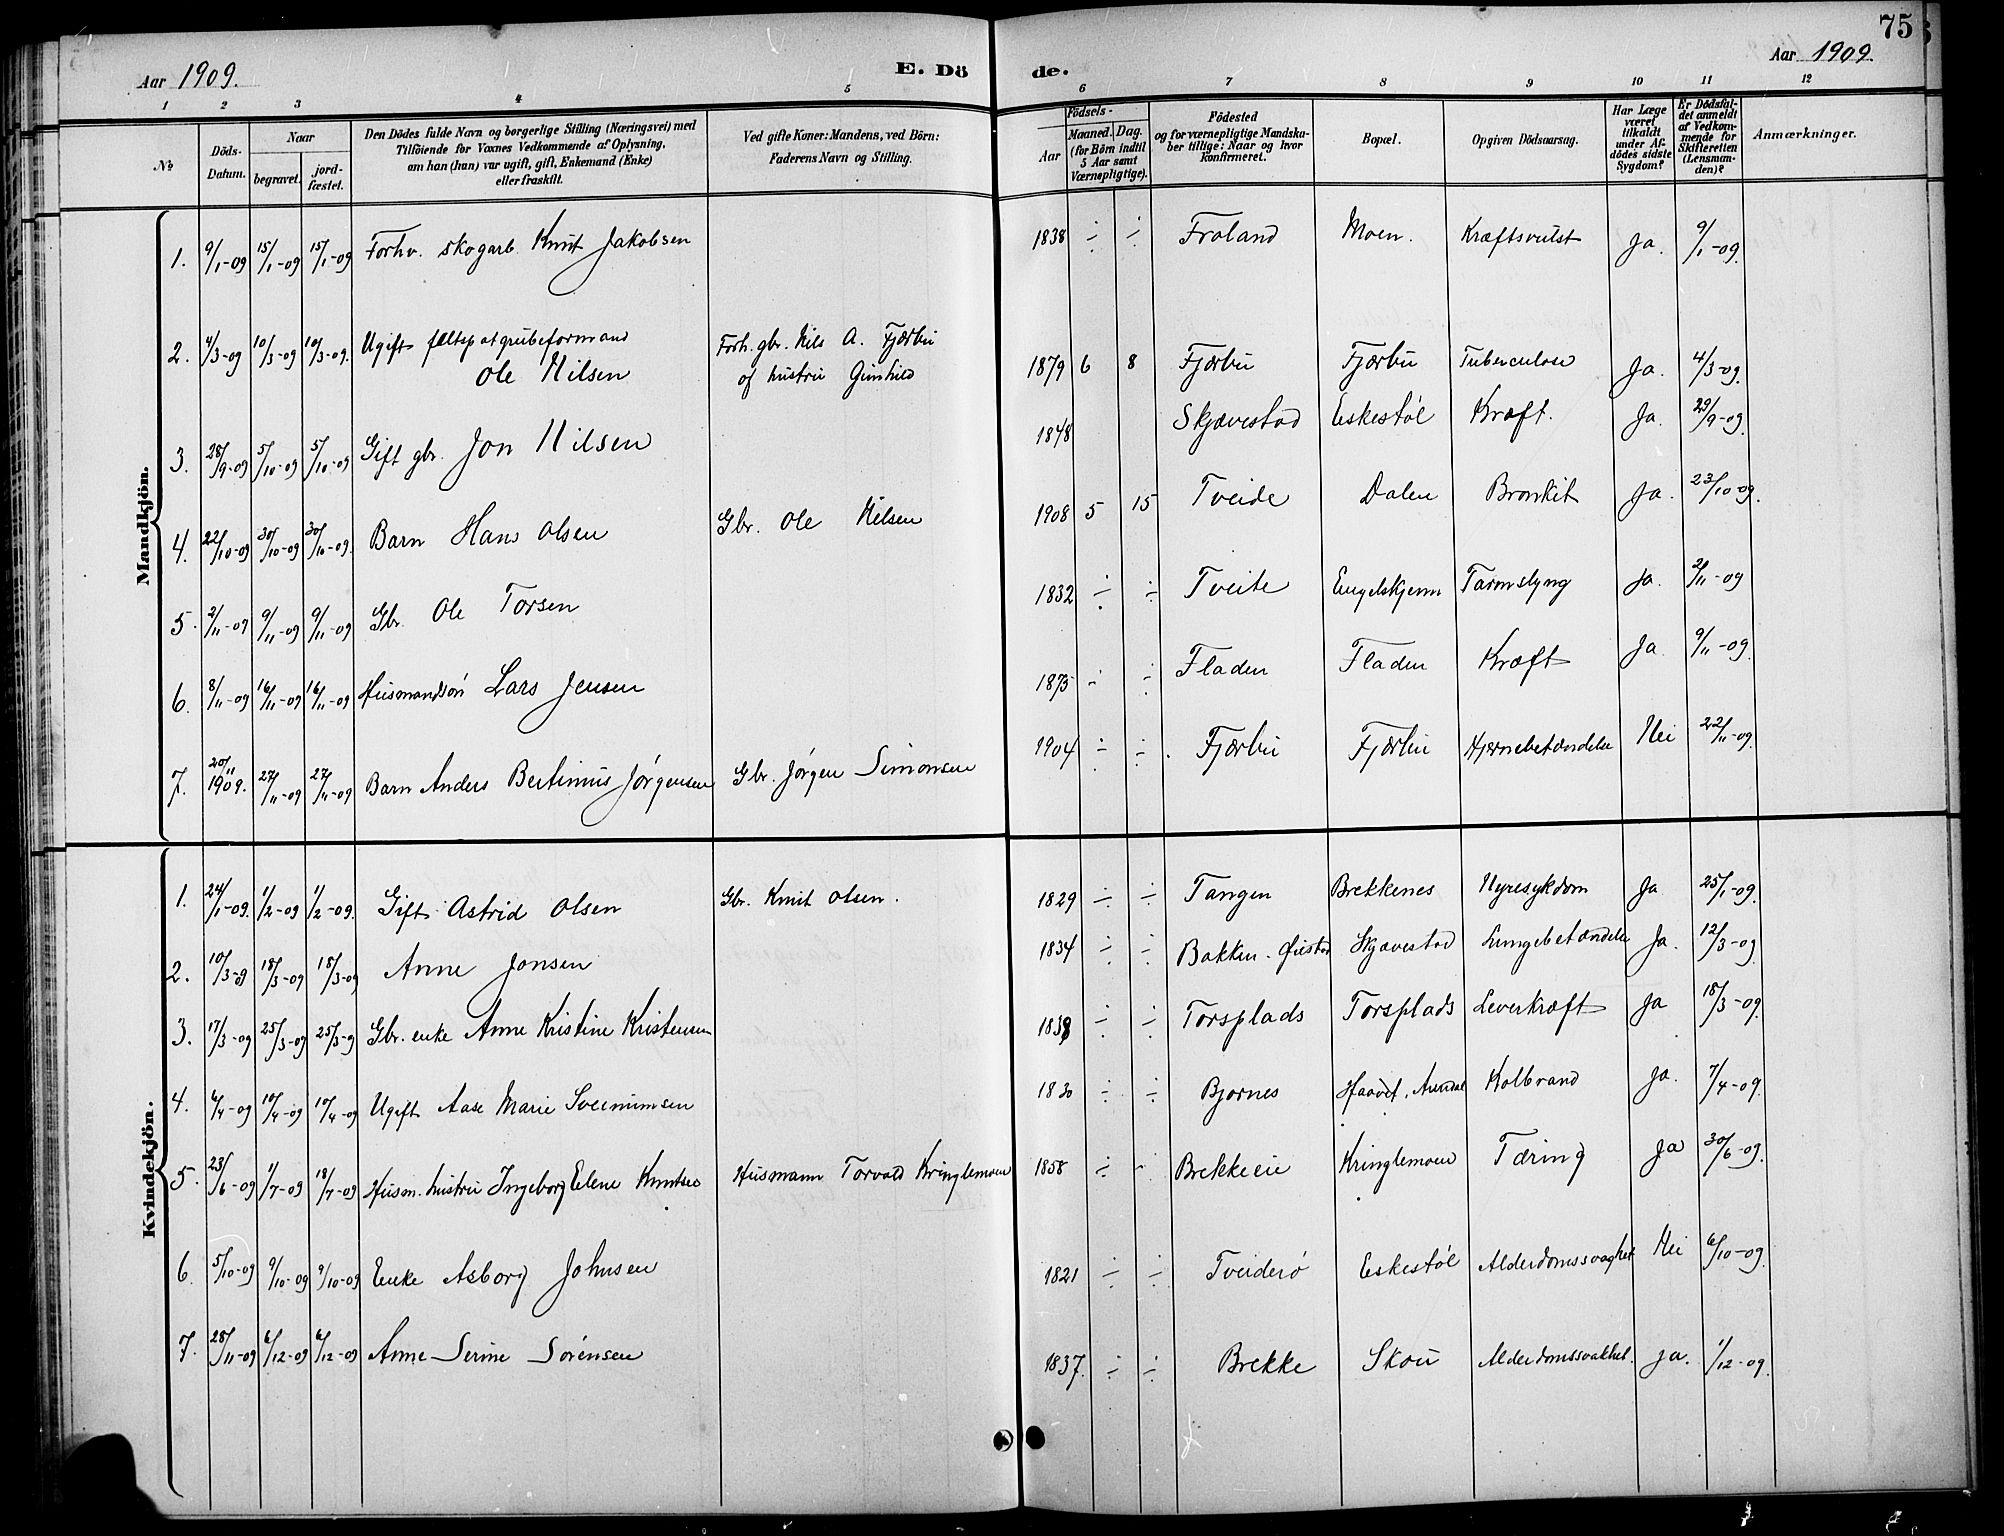 75
Aar 1909. E. Dö de. Aar 1909.
1 2 3 4 5 6 7 8 9 10 11 12
№ Döds-Datum. Naar begravet. jordfæstet. Den Dödes fulde Navn og borgerlige Stilling (Næringsvei) med Tilföiende for Voxnes Vedkommende af Oplysning, om han (hun) var ugift, gift, Enkemand (Enke) eller fraskilt. Ved gifte Koner: Mandens, ved Börn: Faderens Navn og Stilling. Födsels- Aar Maaned. Dag. (for Börn indtil 5 Aar samt Værnepligtige). Födested og for værnepligtige Mandskaber tillige: Naar og hvor konfirmeret. Bopæl. Opgiven Dödsaarsag. Har Læge været tilkaldt under Afdödes sidste Sygdom? Er Dödsfaldet anmeldt af Vedkommende for Skifteretten (Lensmanden)? Anmærkninger.
Mandkjön.
1. 9/1-09 15/1-09 15/1-09 Forhv. skogarb. Knut Jakobsen 1838 ÷ ÷ Froland Moen. Kræftsvulst Ja. 9/1-09.
2. 4/3-09 10/3-09 10/3-09. Ugift feltspatgrubeformand Ole Nilsen Forh. gbr. Nils A. Fjærbu og hustru Gunhild 1879 6 8 Fjærbu Fjærbu Tuberculose Ja. 4/3-09.
3. 28/9-09 5/10-09 5/10-09 Gift gbr. Jon Nilsen 1848 Skjævestad Eskestøl Kræft. Ja. 29/9-09.
4. 22/10-09 30/10-09 30/10-09. Barn Hans Olsen Gbr. Ole Nilsen 1908 5 15 Tveide Dalen Bronkit Ja. 23/10-09.
5. 2/11-09 9/11-09 9/11-09 Gbr. Ole Torsen 1832 ÷ ÷ Tveite Engelskjenn Tarmslyng Ja. 2/11-09
6. 8/11-09 16/11-09 16/11-09 Husmandsøn Lars Jensen 1875 ÷ ÷ Fladen Fladen Kræft Ja 9/11-09.
7. 20/11 1909. 27/11-09 27/11-09 Barn Anders Bertinius Jörgensen Gbr. Jörgen Simonsen 1904 ÷ ÷ Fjærbu Fjærbu Hjernebetændelse Nei 22/11-09.
Kvindekjön.
1. 24/1-09. 1/2-09 1/2-09. Gift Astrid Olsen Gbr. Knut Olsen. 1829 ÷ ÷ Tangen Brekkenes Nyresykdom Ja 25/1-09.
2. 10/3-09 18/3-09 18/3-09 Anne Jonsen 1834 ÷ ÷ Bakken. Skjævestad Lungebetændelse Ja. 12/3-09.
3. 17/3-09 25/3-09 25/3-09 Gbr. enke Anne Kristine Kristensen 1838 ÷ ÷ Torsplads Torsplads Leverkræft Ja 18/3-09.
4. 6/4-09 10/4-09 10/4-09 Ugift Aase Marie Sveinumsen 1830 ÷ ÷ Bjornes Haavet, Arendal Kolbrand Ja. 7/4-09.
5. 23/6-09 1/7-09 18/7-09 Husm. hustru Ingeborg Elene Knutsen Husmann Torvald Kringlemoen 1858 ÷ - Brekkeeie Kringlemoen Tæring Ja 30/6-09.
6. 5/10-09 9/10-09 9/10-09 Enke Asborg Johnsen 1821 ÷ ÷ Tveiderø Eskestøl Alderdomssvaghet Nei 6/10-09.
7. 28/11-09 6/12-09 6/12-09 Anne Serine Sörensen 1837. ÷ ÷ Brekke Skou Alderdomssvakhet. Ja. 1/12-09.